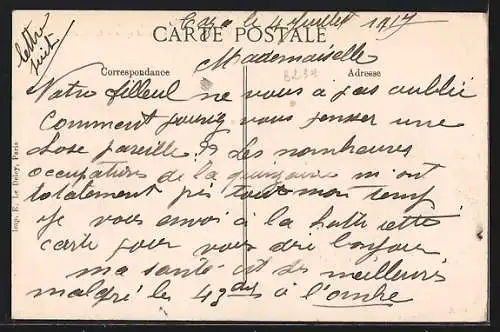 lettre
suit
Taza le 4 Juillet 1917
CARTE POSTALE
Mademoiselle
Correspondance
Adresse
B234
Votre filleul ne vous a pas oublié
Comment pouviez vous penser une
chose pareille ?? Les nombreuses
occupations de la quinzaine m'ont
totalement pris tout mon temps
Je vous envoi à la hatte cette
carte pour vous dire bonjour
ma santé est des meilleures
malgré les 43 à l'ombre
Imp. E. Le Deley, Paris